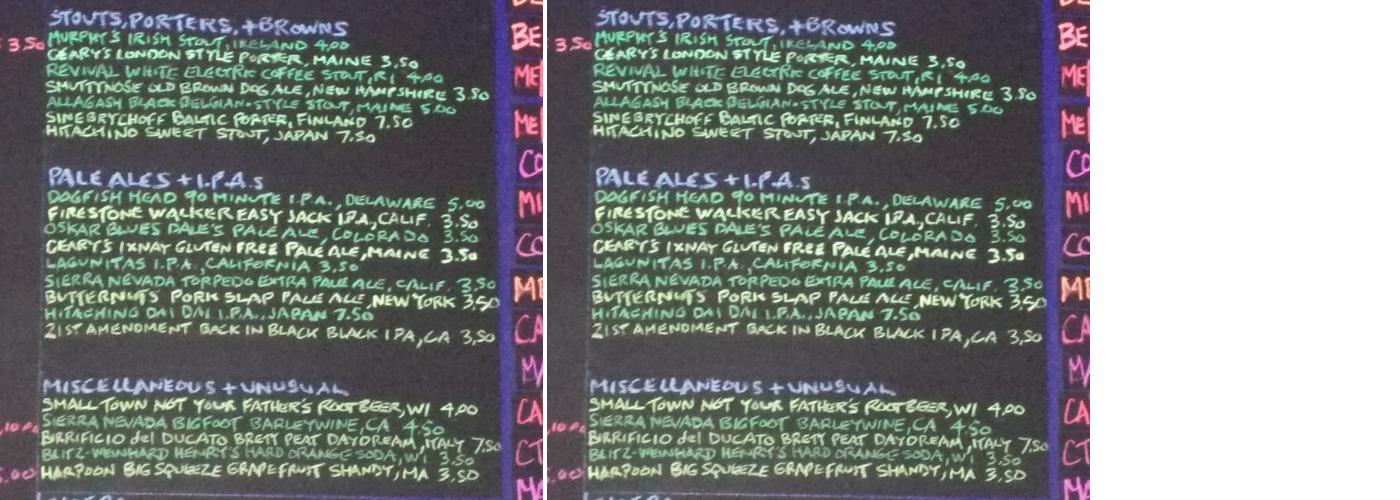 STOUTS, PORTERS, + BROWNS
3.50 MURPHY'S IRISH STOUT, IRELAND 4.00
GEARY'S LONDON STYLE PORTER, MAINE 3.50
REVIVAL WHITE ELECTRIC COFFEE STOUT, RI 4.00
SMUTTYNOSE OLD BROWN DOG ALE, NEW HAMPSHIRE 3.50
ALLAGASH BLACK BELGIAN-STYLE STOUT, MAINE 5.00
SINEBRYCHOFF BALTIC PORTER, FINLAND 7.50
HITACHINO SWEET STOUT, JAPAN 7.50
PALE ALES + I.P.A.s
DOGFISH HEAD 90 MINUTE I.P.A., DELAWARE 5.00
FIRESTONE WALKER EASY JACK IPA, CALIF. 3.50
OSKAR BLUES DALE'S PALE ALE, COLORADO 3.50
GEARY'S IXNAY GLUTEN FREE PALE ALE, MAINE 3.50
LAGUNITAS I.P.A., CALIFORNIA 3.50
SIERRA NEVADA TORPEDO EXTRA PALE ALE, CALIF. 3.50
BUTTERNUTS PORK SLAP PALE ALE, NEW YORK 3.50
HITACHINO DAI DAI I.P.A., JAPAN 7.50
21ST AMENDMENT BACK IN BLACK BLACK IPA, CA 3.50
MISCELLANEOUS + UNUSUAL
SMALL TOWN NOT YOUR FATHER'S ROOT BEER, WI 4.00
SIERRA NEVADA BIGFOOT BARLEYWINE, CA 4.50
BIRRIFICIO del DUCATO BRETT PEAT DAYDREAM, ITALY 7.50
BLITZ-WEINHARD HENRY'S HARD ORANGE SODA, WI 3.50
HARPOON BIG SQUEEZE GRAPEFRUIT SHANDY, MA 3.50
STOUTS, PORTERS, + BROWNS
3.50 MURPHY'S IRISH STOUT, IRELAND 4.00
GEARY'S LONDON STYLE PORTER, MAINE 3.50
REVIVAL WHITE ELECTRIC COFFEE STOUT, RI 4.00
SMUTTYNOSE OLD BROWN DOG ALE, NEW HAMPSHIRE 3.50
ALLAGASH BLACK BELGIAN-STYLE STOUT, MAINE 5.00
SINEBRYCHOFF BALTIC PORTER, FINLAND 7.50
HITACHINO SWEET STOUT, JAPAN 7.50
PALE ALES + I.P.A.s
DOGFISH HEAD 90 MINUTE I.P.A., DELAWARE 5.00
FIRESTONE WALKER EASY JACK IPA, CALIF. 3.50
OSKAR BLUES DALE'S PALE ALE, COLORADO 3.50
GEARY'S IXNAY GLUTEN FREE PALE ALE, MAINE 3.50
LAGUNITAS I.P.A., CALIFORNIA 3.50
SIERRA NEVADA TORPEDO EXTRA PALE ALE, CALIF. 3.50
BUTTERNUTS PORK SLAP PALE ALE, NEW YORK 3.50
HITACHINO DAI DAI I.P.A., JAPAN 7.50
21ST AMENDMENT BACK IN BLACK BLACK IPA, CA 3.50
MISCELLANEOUS + UNUSUAL
SMALL TOWN NOT YOUR FATHER'S ROOT BEER, WI 4.00
SIERRA NEVADA BIGFOOT BARLEYWINE, CA 4.50
BIRRIFICIO del DUCATO BRETT PEAT DAYDREAM, ITALY 7.50
BLITZ-WEINHARD HENRY'S HARD ORANGE SODA, WI 3.50
HARPOON BIG SQUEEZE GRAPEFRUIT SHANDY, MA 3.50